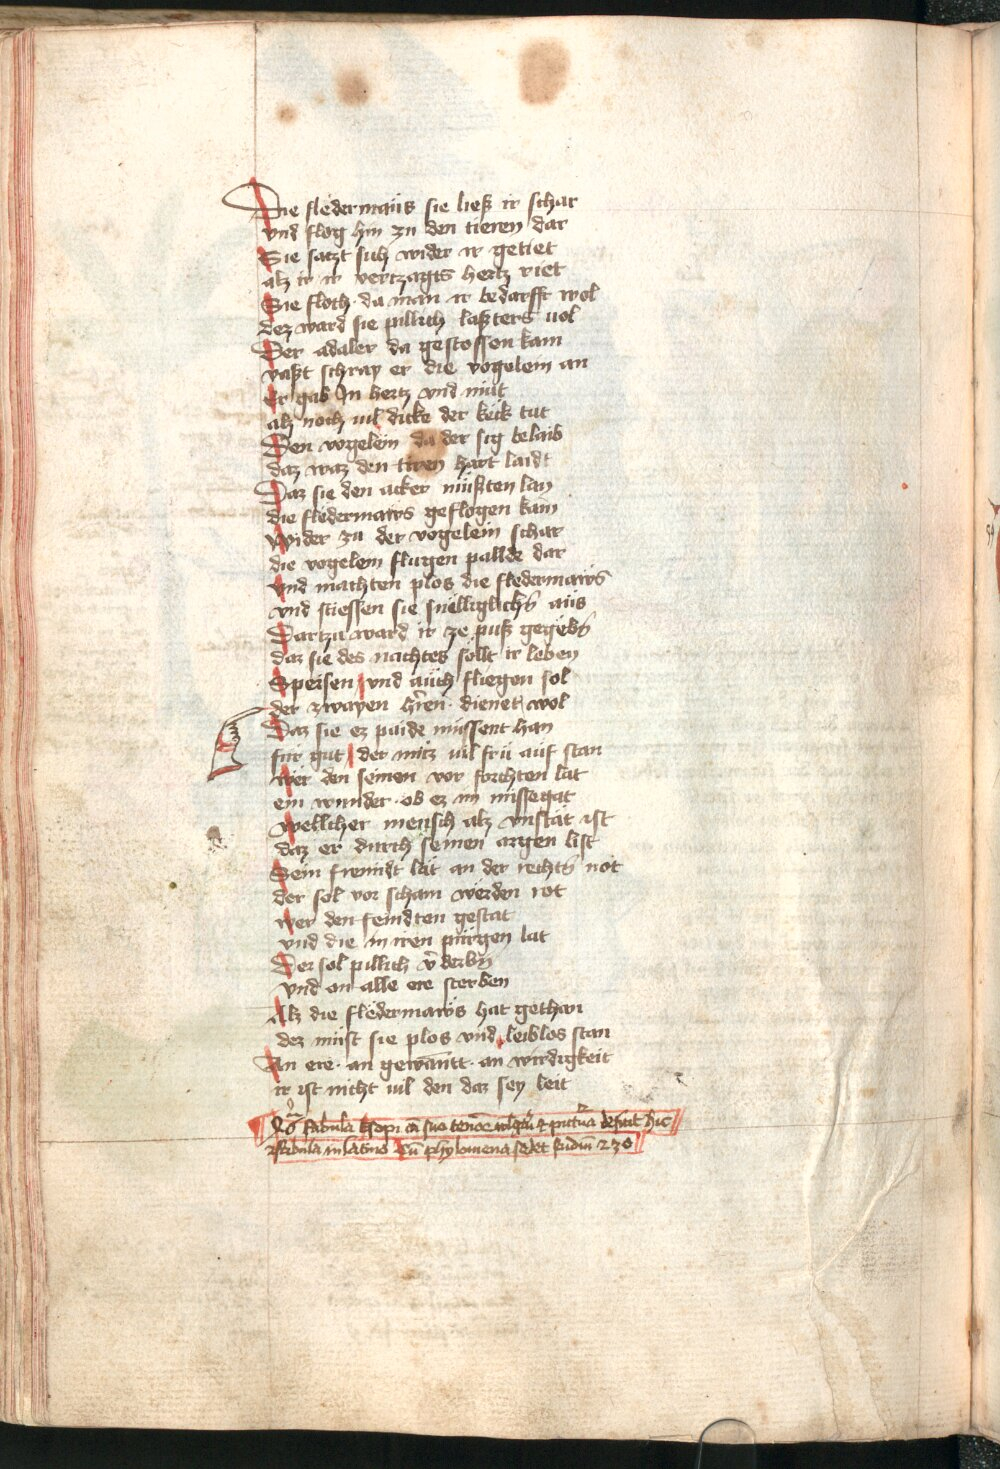 Die fledermaüs sie ließ ir schar
vnd flog hin zu den tieren dar
Sie satzt sich wider ir getiet
alz ir ir vertzagts hertz riet
Sie floch da man ir bedarfft wol
dez ward sie pillich lasters vol
Der adaler da gestossen kam
vaßt schray er die vogelein an
Er gab In hertz vnd müt
alz noch vil dicke der keck tüt
Den vogelein da der sig belaib
daz waz den tiren hart laidt
Daz sie den acker müsten lan
die fledermaws geflogen kam
Wider zu der vogelein schar
die vogelein flugen pallde dar
Vnd machten plos die fledermaws
vnd stiessen sie snelliglich aüs
Dartzu ward ir ze puß gegeb
daz sie des nachtes söllt ir leben
Speisen vnd aüch fliegen sol
der zwayen hren dienet wol
Daz sie ez paide müssent han
für gut der mütz vil frü auf stan
Wer den seinen vor forchten lat
ein wunder ob ez im missegat
Wellicher mensch alz vnstät ist
daz er durch seinen argen list
Sein freündt lät an der rechts not
der sol vor scham werden rot
Wer den feindten gestat
vnd die in iren pürgen lat
Der sol pillich v̄derbn̄
vnd an alle ere sterben
Alz die fledermaws hat gethan
dez müst sie plos vnd leiblos stan
An ere an gewantt an wirdigkeit
ir ist nicht vil den daz sey leit
fabula Esopi suo defuit hic
fabula in latino Cū phylomena sedet